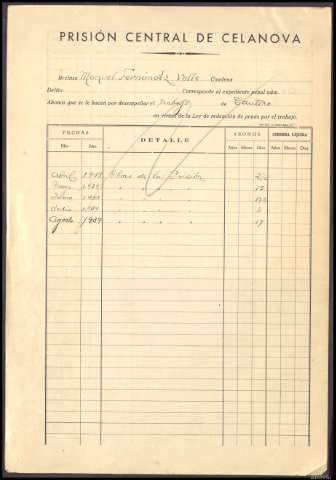 PRISIÓN CENTRAL DE CELANOVA
Recluso Manuel Fernández Valle Condena
Delito Corresponde al expediente penal núm.
Abonos que se le hacen por desempeñar el trabajo de Cantero
en virtud de la Ley de redención de penas por el trabajo.
FECHAS DETALLE ABONOS CONDENA LÍQUIDA
Mes Año Años Meses Días Años Meses Días
Abril 1939 Obras de la Prisión
Mayo 1939 " " " " 12
1939 " " " "
1939 " " " "
Agosto 1939 " " " " 17